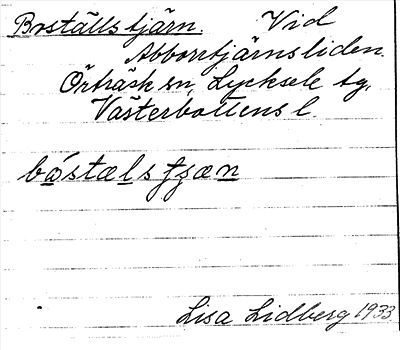 Boställstjärn. Vid
Abborrtjärnsliden.
Örträsk sn, Lycksele tg,
Västerbottens l.
bóstælstjæn
Lisa Lidberg 1933